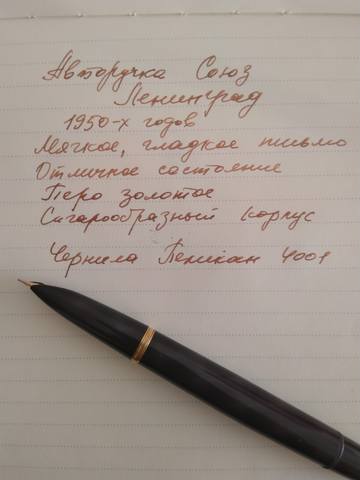 Авторучка Союз
Ленинград
1950-х годов
Мягкое, гладкое письмо
Отличное состояние
Перо золотое
Сигарообразный корпус
Чернила Пеликан 4001